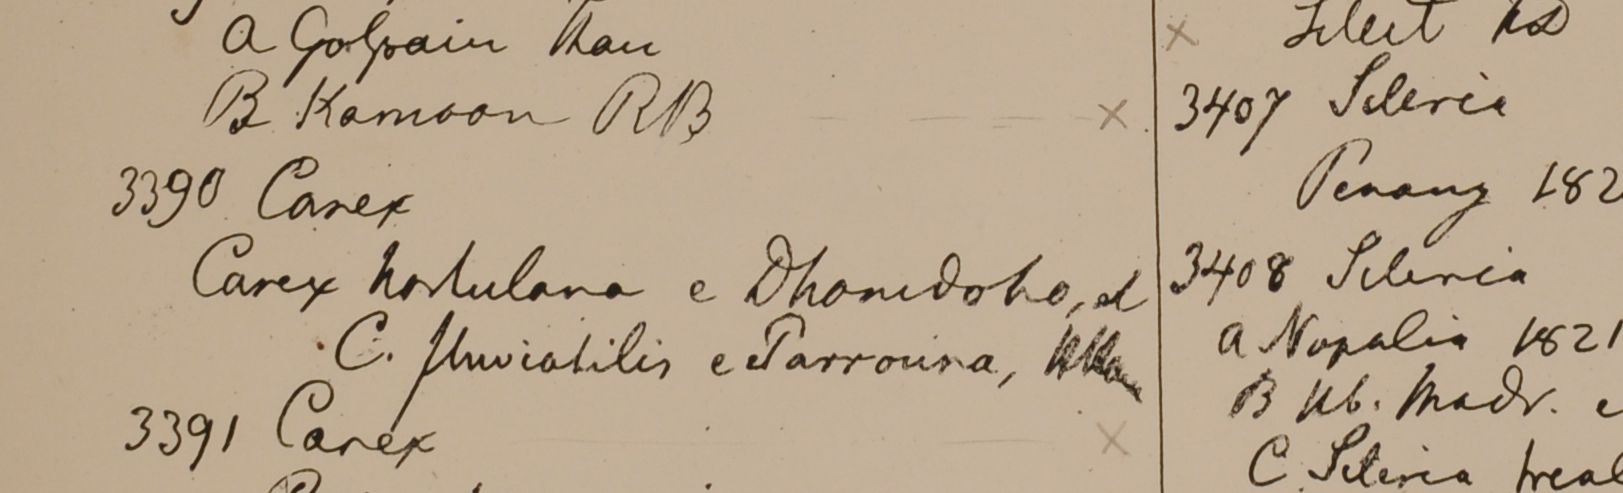 A Golpain Ham
B Kamoon RB
3390 Carex
Carex hortulana e Dhamdoho, et
C. fluviatilis e Parrouna,
3391 Carex
Silet HD
3407 Scleria
Penang 182
3408 Scleria
a Napalia 1821
B Hb. Madr. e
C Scleria